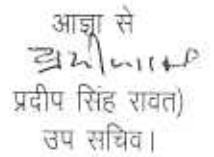 आज्ञा से
प्रदीप सिंह रावत)
उप सचिव।